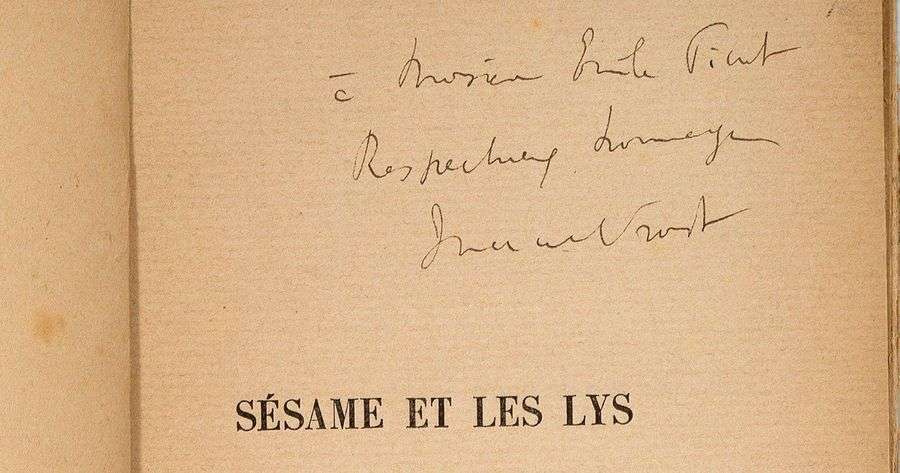 à Monsieur Emile Picot
Respectueux hommage
Marcel Proust
SÉSAME ET LES LYS